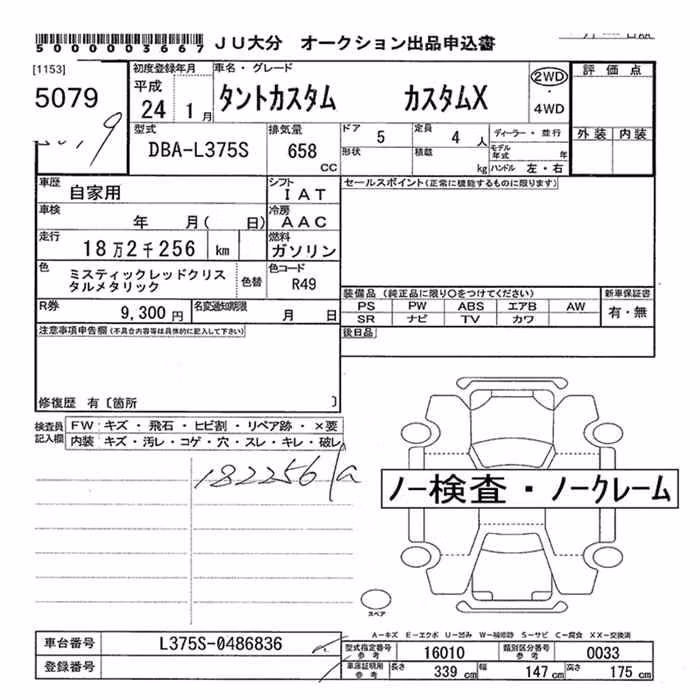 5000003667 JU大分 オークション出品申込書
[1153]
5079
初度登録年月
平成
24 1月
車名・グレード
タントカスタム カスタムX
2WD
・
4WD
評価点
外装 内装
型式
DBA-L375S
排気量
658
CC
ドア 5
定員 4 人
形状
積載 kg
ディーラー・並行
モデル年式 年
ハンドル 左・右
車歴 自家用
シフト IAT
セールスポイント(正常に機能するものに限ります)
車検 年 月( 日)
冷房 AAC
走行 18万2千256 km
燃料 ガソリン
色 ミスティックレッドクリス
タルメタリック
色替
色コード R49
装備品(純正品に限り〇をつけてください)
新車保証書
PS PW ABS エアB AW
有・無
SR ナビ TV カワ
R券 9,300円
名変通知期限 月 日
後日品
注意事項申告欄(不具合内容等は具体的に記入して下さい)
修復歴 有〔箇所 〕
検査員
記入欄
FW キズ・飛石・ヒビ割・リペア跡・×要
内装 キズ・汚レ・コゲ・穴・スレ・キレ・破レ
182256
ノー検査・ノークレーム
スペア
A-キズ E-エクボ U-凹み W-補修跡 S-サビ C-腐食 XX-交換済
車台番号 L375S-0486836
登録番号
型式指定番号
参考
16010
類別区分番号
参考
0033
車庫証明用
参考
長さ 339 cm
幅 147 cm
高さ 175 cm